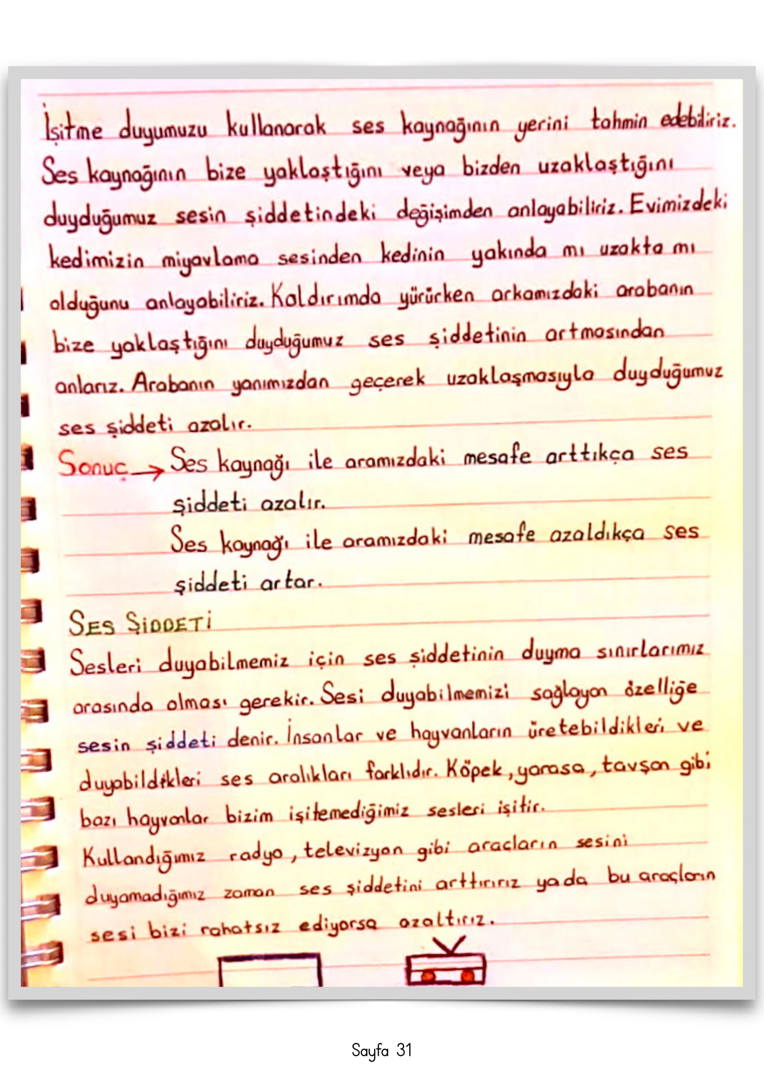 İşitme duyumuzu kullanarak ses kaynağının yerini tahmin edebiliriz.
Ses kaynağının bize yaklaştığını veya bizden uzaklaştığını
duyduğumuz sesin şiddetindeki değişimden anlayabiliriz. Evimizdeki
kedimizin miyavlama sesinden kedinin yakında mı uzakta mı
olduğunu anlayabiliriz. Kaldırımda yürürken arkamızdaki arabanın
bize yaklaştığını duyduğumuz ses şiddetinin artmasından
anlarız. Arabanın yanımızdan geçerek uzaklaşmasıyla duyduğumuz
ses şiddeti azalır.
Sonuç → Ses kaynağı ile aramızdaki mesafe arttıkça ses
şiddeti azalır.
Ses kaynağı ile aramızdaki mesafe azaldıkça ses
şiddeti artar.
SES ŞİDDETİ
Sesleri duyabilmemiz için ses şiddetinin duyma sınırlarımız
arasında olması gerekir. Sesi duyabilmemizi sağlayan özelliğe
sesin şiddeti denir. İnsanlar ve hayvanların üretebildikleri ve
duyabildikleri ses aralıkları farklıdır. Köpek, yarasa, tavşan gibi
bazı hayvanlar bizim işitemediğimiz sesleri işitir.
Kullandığımız radyo, televizyon gibi araçların sesini
duyamadığımız zaman ses şiddetini arttırırız ya da bu araçların
sesi bizi rahatsız ediyorsa azaltırız.
Sayfa 31